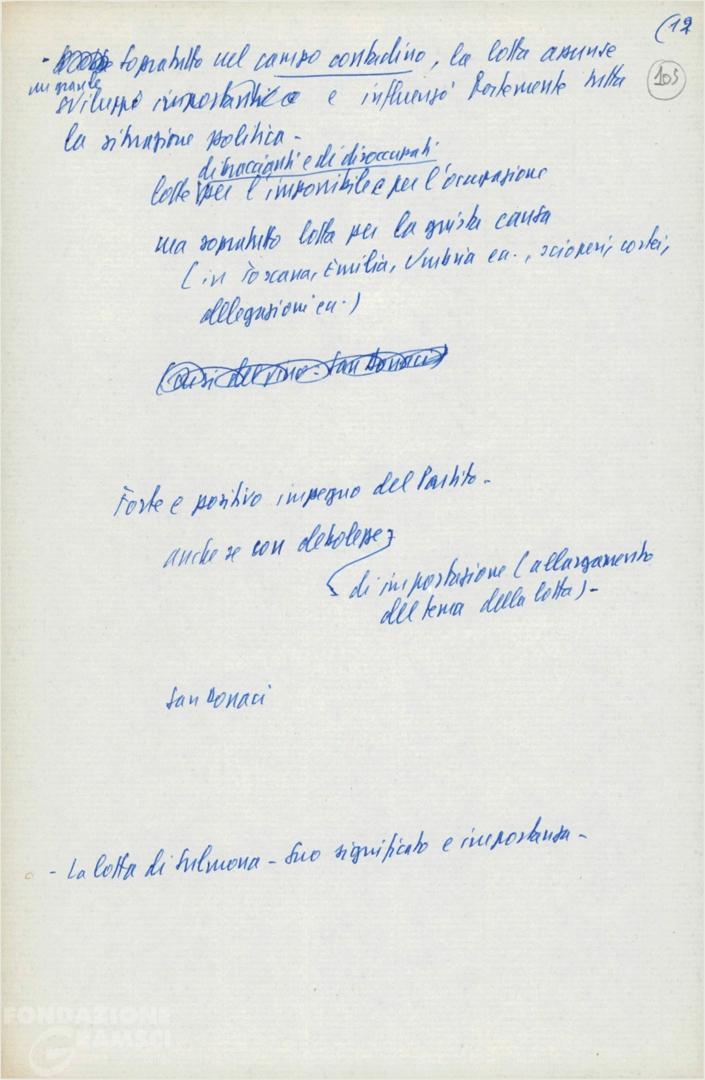 (12
105
- Sopratutto nel campo contadino, la lotta assunse
un grande
sviluppo importantissimo e influenzò fortemente tutta
la situazione politica -
di braccianti e di disoccupati
lotte per l'imponibile e per l'occupazione
ma sopratutto lotta per la giusta causa
(in Toscana, Emilia, Umbria ecc., scioperi, cortei,
delegazioni ecc.)
(Crisi del vino - San Donaci)
Forte e positivo impegno del Partito -
anche se con debolezze
di impostazione (allargamento
del tema della lotta) -
San Donaci
- La lotta di Sulmona - Suo significato e importanza -
FONDAZIONE
GRAMSCI